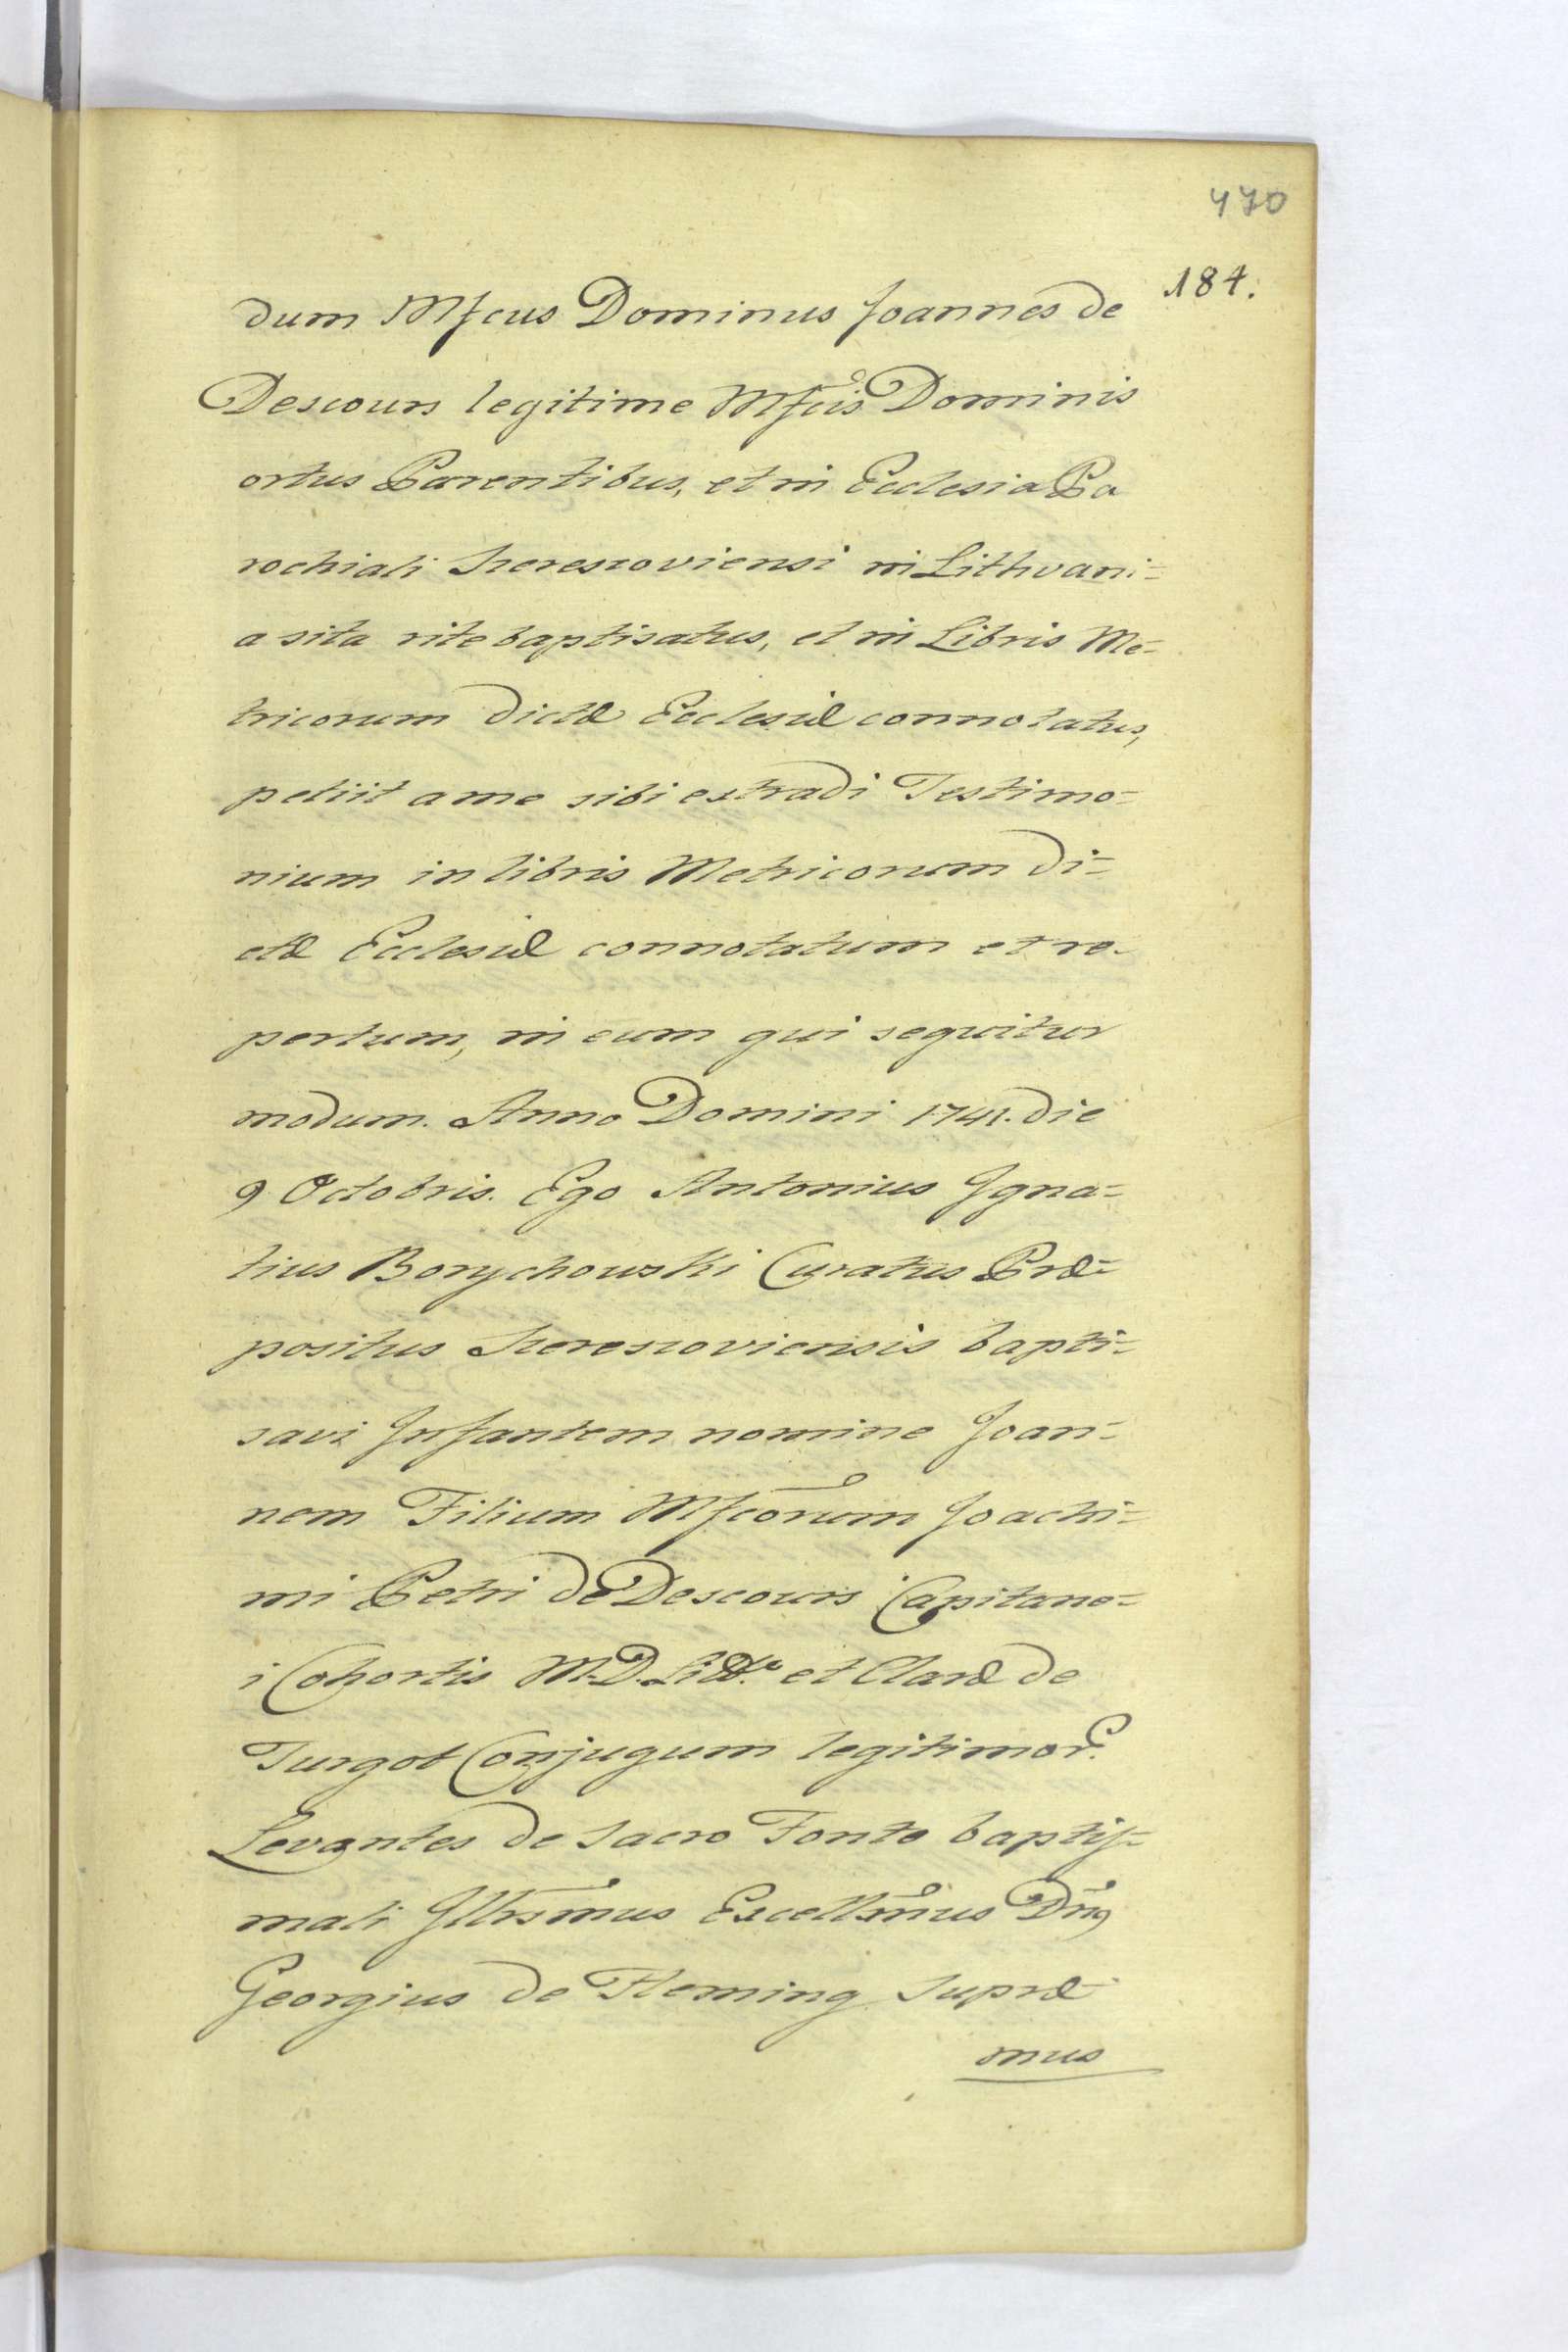 470
184.
dum Mfcus Dominus Joannes de
Descours legitime Mfcis Dominis
ortus Parentibus, et in Ecclesia Pa
rochiali Szereszoviensi in Lithvani=
a sita rite baptisatus, et in Libris Me-
tricorum dictæ Ecclesiæ connotatus,
petiit a me sibi extradi Testimo=
nium in libris Metricorum di=
ctæ Ecclesiæ connotatum et re-
pertum, in eum qui sequitur
modum. Anno Domini 1741. die
9 Octobris. Ego Antonius Igna=
tius Borychowski Curatus Præ=
positus Szereszoviensis bapti=
savi Infantem nomine Joan=
nem Filium Mfcorum Joachi=
mi Petri de Descours Capitane=
i Cohortis M.D. Litt. et Claræ de
Turgot Conjugum legitimor.
Levantes de Sacro Fonte baptis=
mali Illrsmus Excellsmus Dnus
Georgius de Fleming Supræ
mus